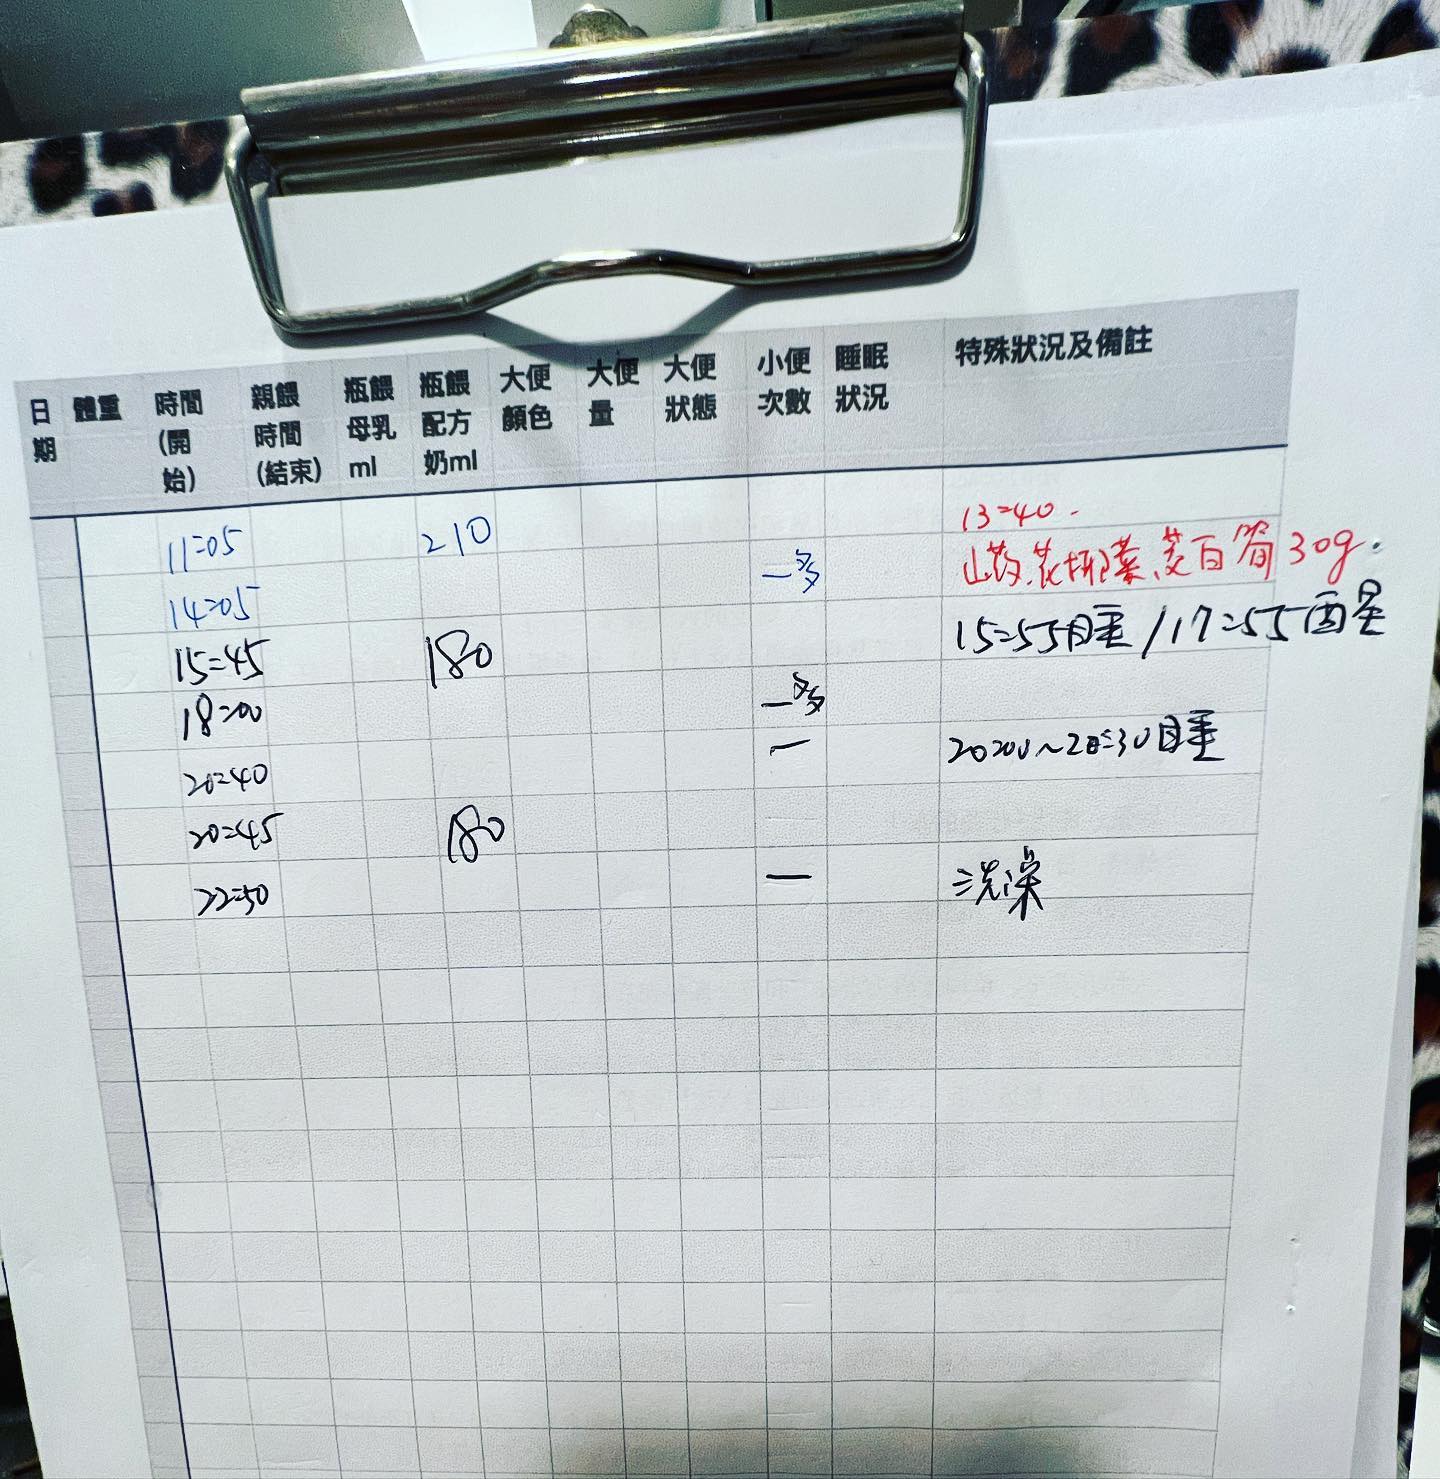 日期 體重 時間(開始) 親餵時間(結束) 瓶餵母乳ml 瓶餵配方奶ml 大便顏色 大便量 大便狀態 小便次數 睡眠狀況 特殊狀況及備註
11:05 210 13:40.
14:05 一多 山药、花椰菜、茭白筍 30g.
15:45 180 15:55睡/17:55酉星
18:00 一多
20:40 一 20:00~20:30睡
20:45 180
22:50 一 洗澡